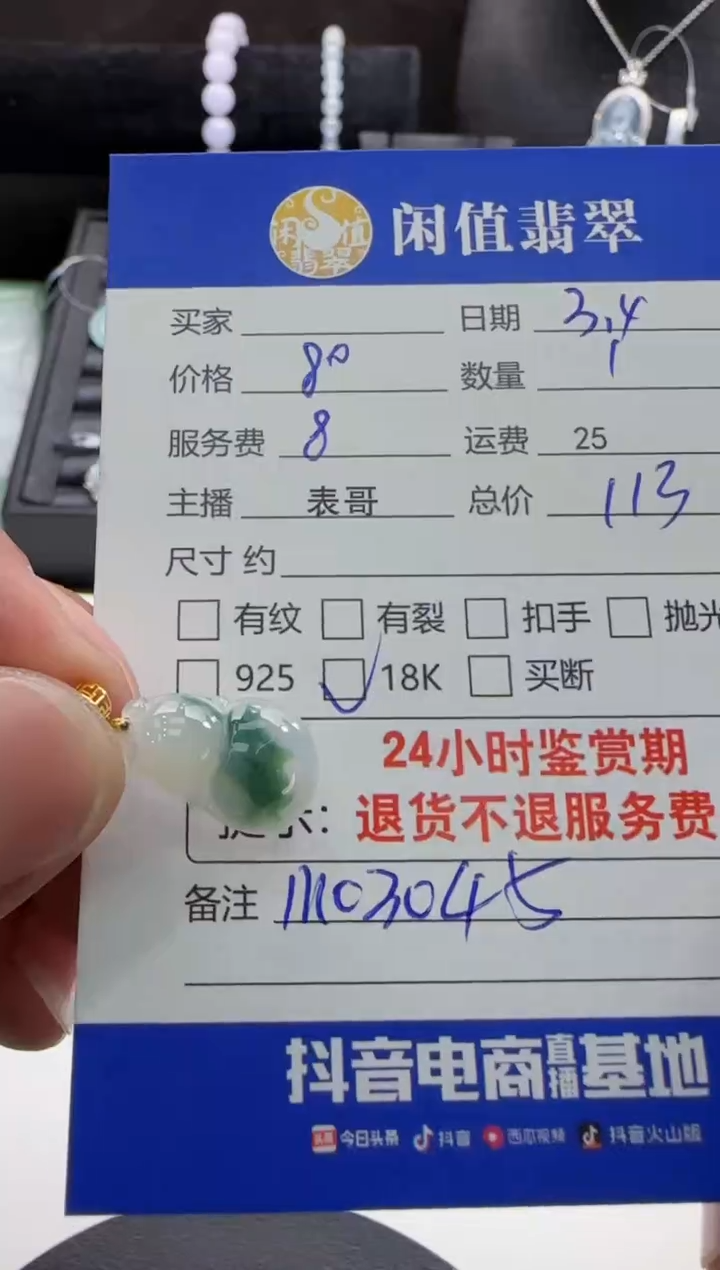 闲值翡翠
闲值翡翠
买家 日期 3.4
价格 80 数量 1
服务费 8 运费 25
主播 表哥 总价 113
尺寸 约
有纹 有裂 扣手 抛光
925 18K 买断
24小时鉴赏期
提示：退货不退服务费
备注 1103045
抖音电商直播基地
头条 今日头条 抖音 西瓜视频 抖音火山版